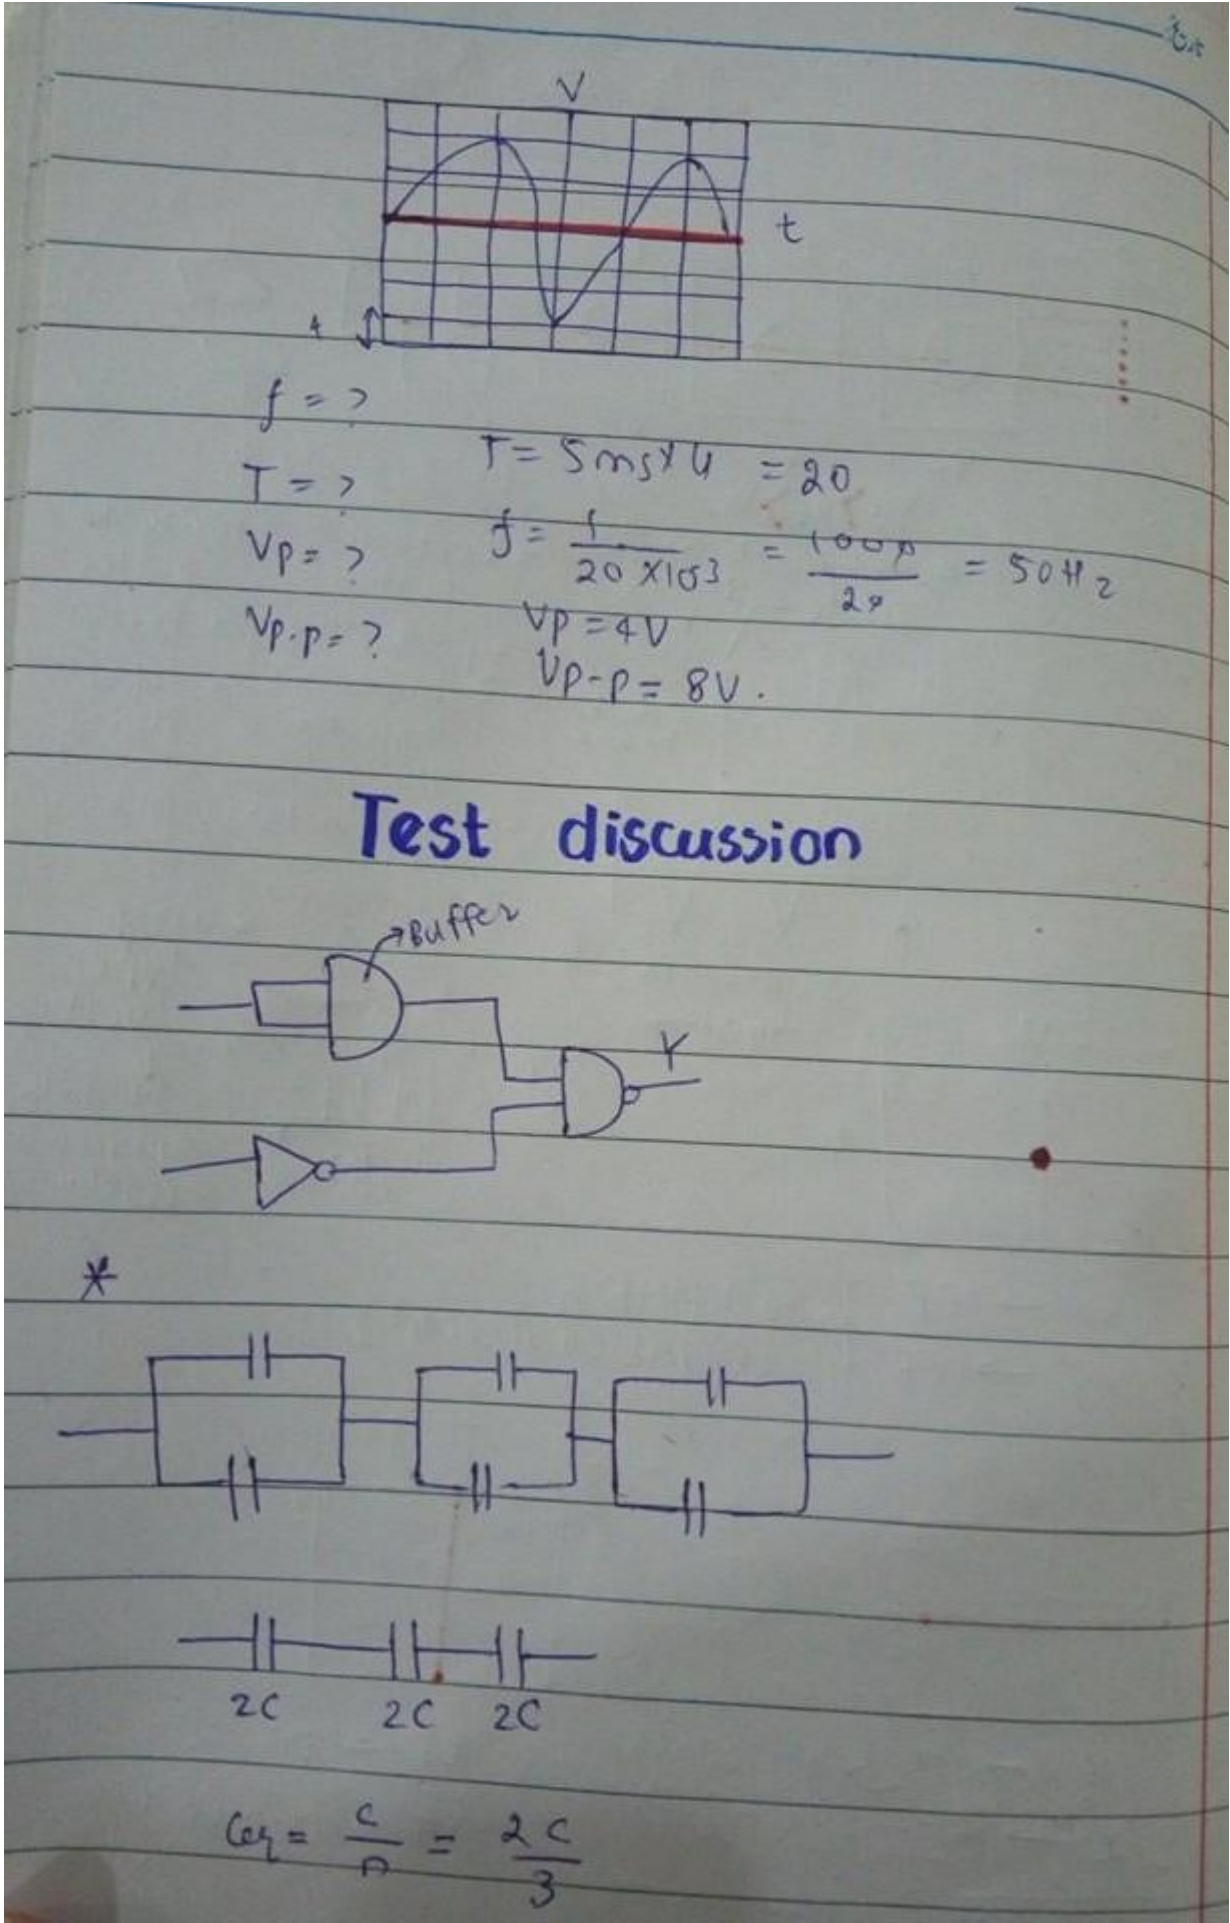 V
t
4
f = ?
T = ? T = 5ms×4 = 20
Vp = ? f = 1/20 ×10³ = 1000/20 = 50Hz
Vp.p = ? Vp = 4V
Vp-p = 8V.
Test discussion
→Buffer
Y
*
2C 2C 2C
Ceq = C/n = 2C/3